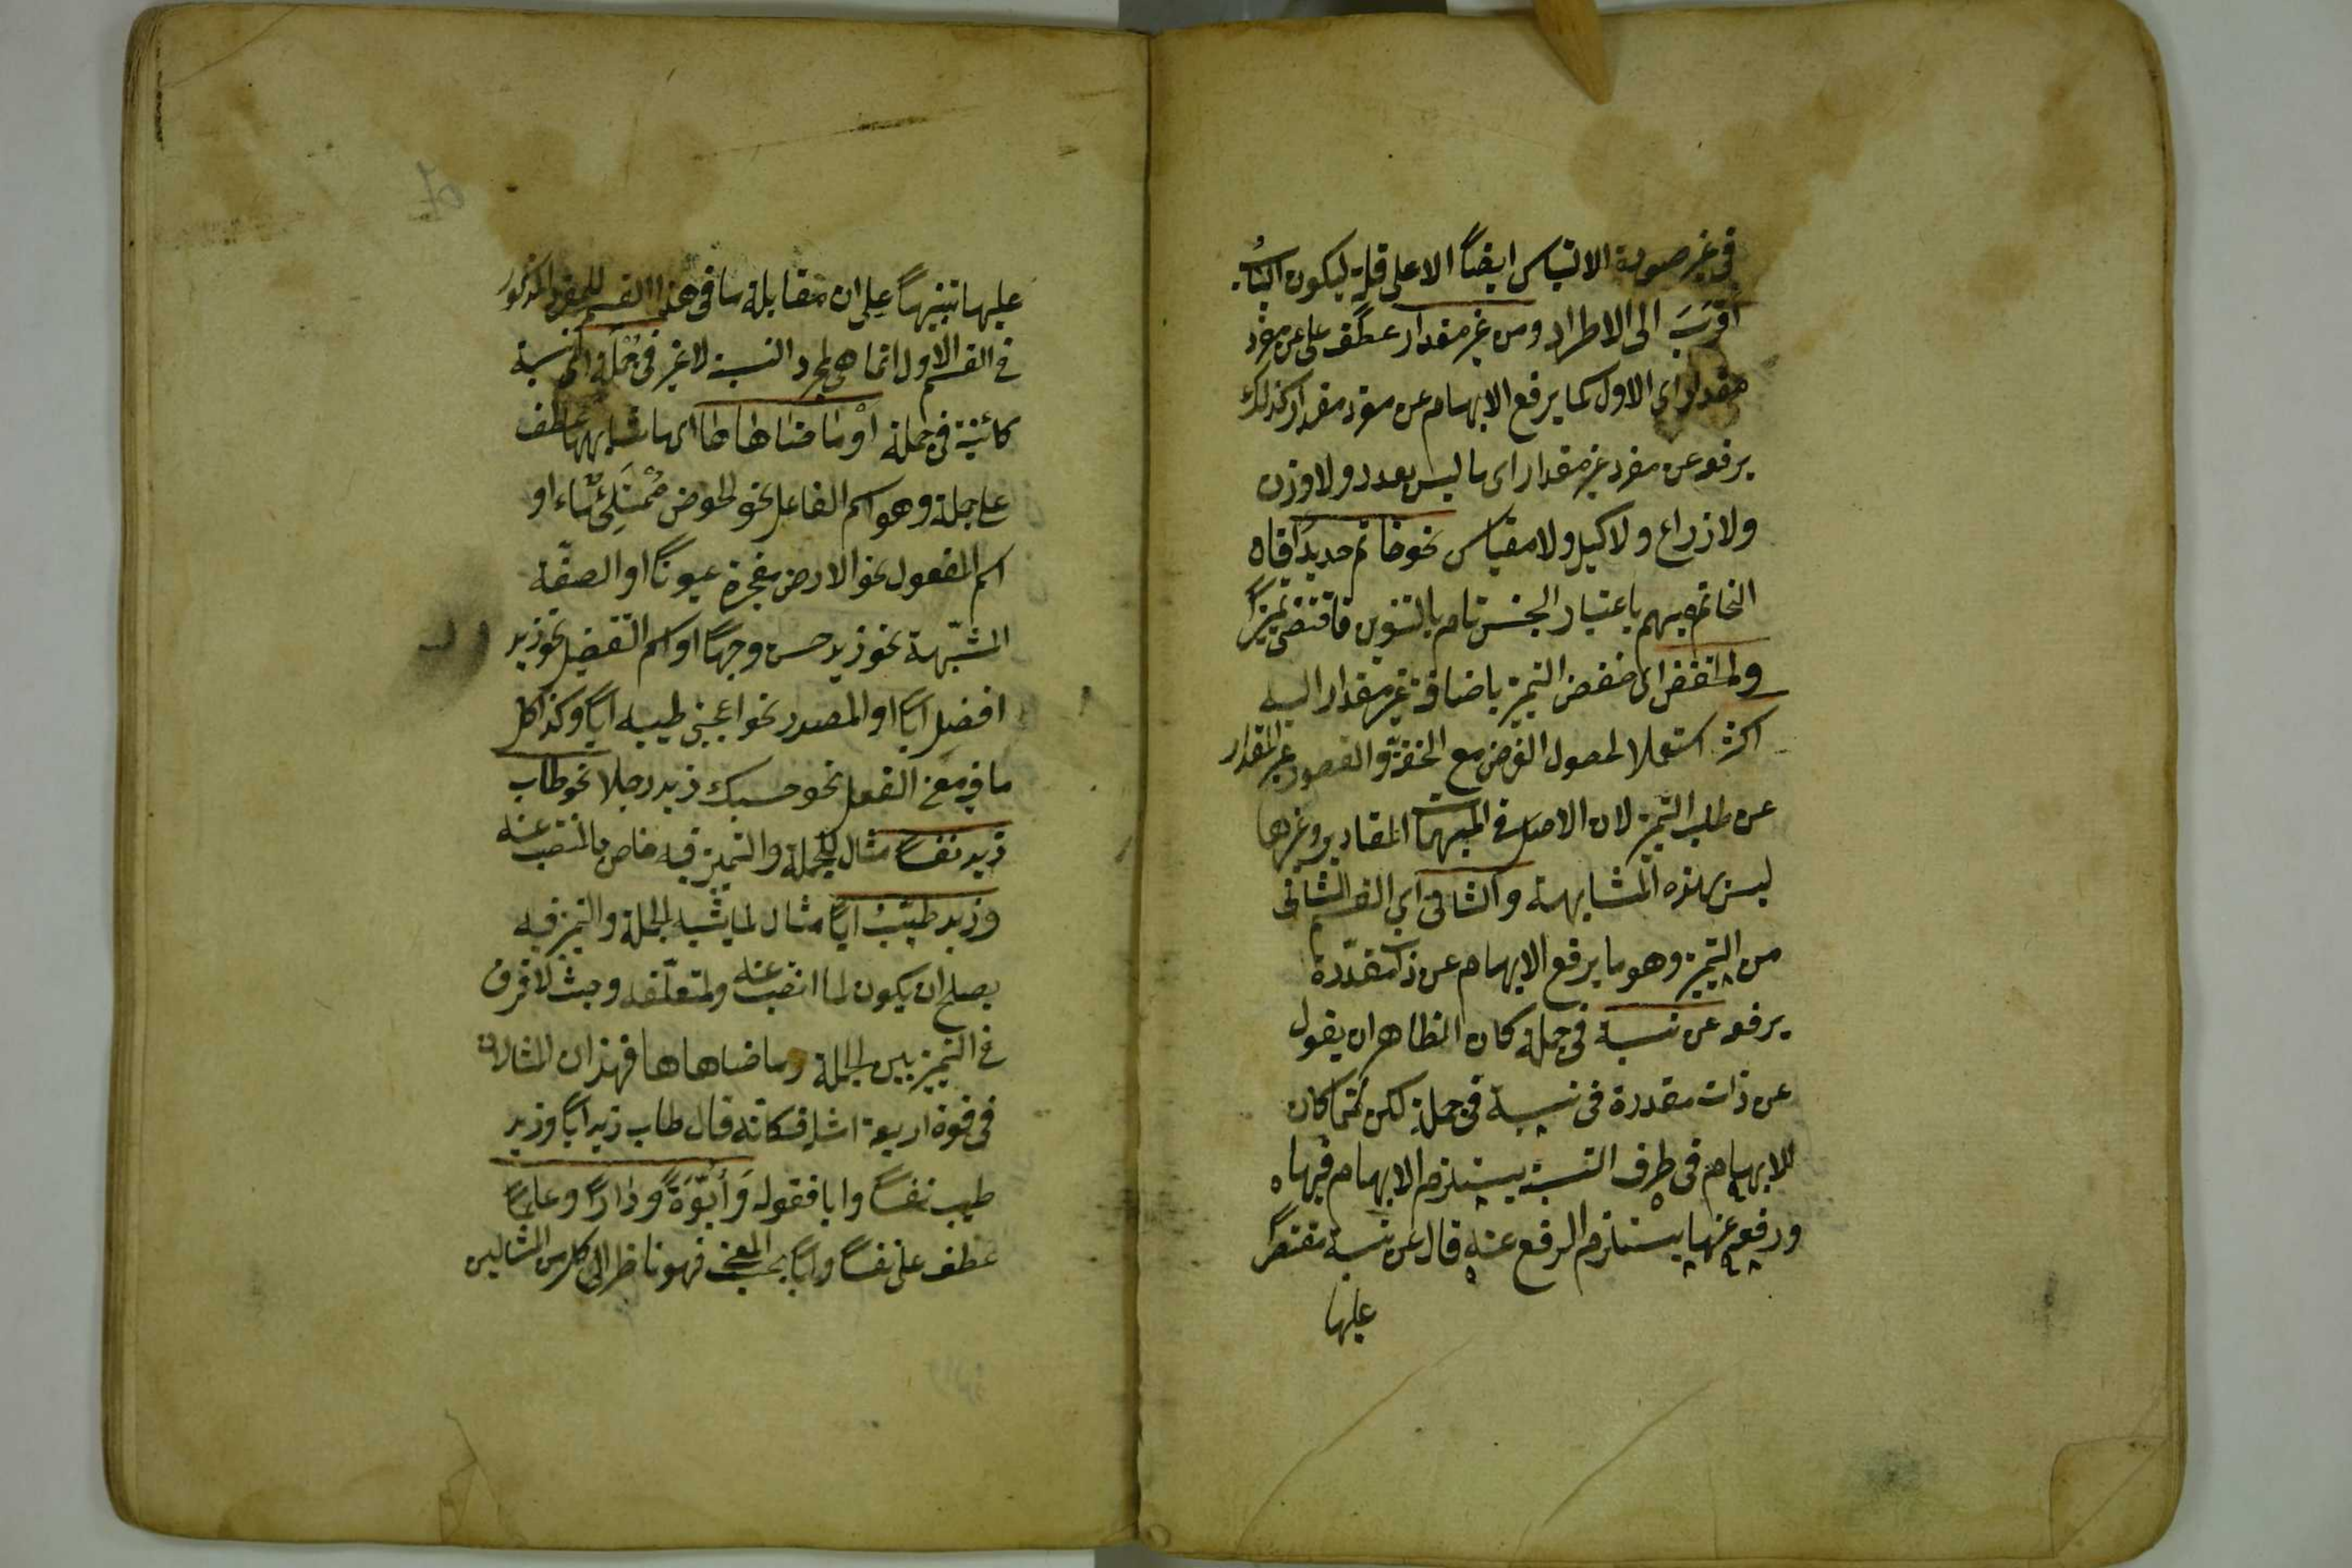 في غير صورة الالتباس ايضاً الا على قلة ليكون الباب
اقرَبَ الى الاطراد ومن غير مقدار عطف على عن مفرد
مقدار اى الاول كما يرفع الابهام عن مفرد مقدار كذلك
يرفعه عن مفرد غير مقدار اى ما ليس بعدد ولا وزن
ولا ذراع ولا كيل ولا مقياس نحو خاتم حديدًا فان
الخاتم مبهم باعتبار الجنس تام بالتنوين فاقتضى تميزاً
والخفض اى خفض التميز باضافة غير مقدار اليه
اكثر استعمالا لحصول الغرض مع الخفة والقصور غير المقدار
عن طلب التميز لان الاصل في المبهمات المقادير وغيرها
ليس بهذه المشابهة والثانى اي القسم الثانى
من التميز وهو ما يرفع الابهام عن ذات مقدّرة
يرفعه عن نسبة في جملة كان الظاهر ان يقول
عن ذات مقدرة في نسبة في جملة لكن لما كان
الابهام في طرف النسبة يستلزم الابهام فيها
ورفعه عنها يستلزم الرفع عنه قال عن نسبة مقتصراً
عليها
عليها تنبيهاً على ان مقابلة ما في هذا القسم للمفرد المذكور
في القسم الاول انما هى لمجرد النسبة لا غير في جُمْلَةٍ اى نسبة
كائنة في جملة أوْ ما ضاهاها اى ما شابهها عطف
على جملة وهو اسم الفاعل نحو الحوض مُمْتَلِئٌ ماء او
اسم المفعول نحو الارض مفجرة عيوناً او الصفّة
المشبّهة نحو زيد حسن وجهاً او اسم التفضيل نحو زيد
افضل اباً او المصدر نحو اعجبنى طيبه اباً وكذا كل
ما في معنى الفعل نحو حسبك زيد رجلا نحو طاب
زيد نفساً مثال للجملة والتميز فيه خاص بالمنتصب عنه
وزيد طيّبٌ اباً مثال لما يشبه الجملة والتميز فيه
يصلح ان يكون لما انتصب عنه ولمتعلّقه وحيث لا فرق
في التميز بين الجملة وما ضاهاها فهذان المثالان
في قوة اربعة امثلة فكانه قال طاب زيد اباً وزيد
طيب نفساً وابا فقوله وَأُبُوَّةً ودَاراً وعلماً
عطف على نفساً واباً بحسب المعنى فهو ناظر الى كل من المثالين